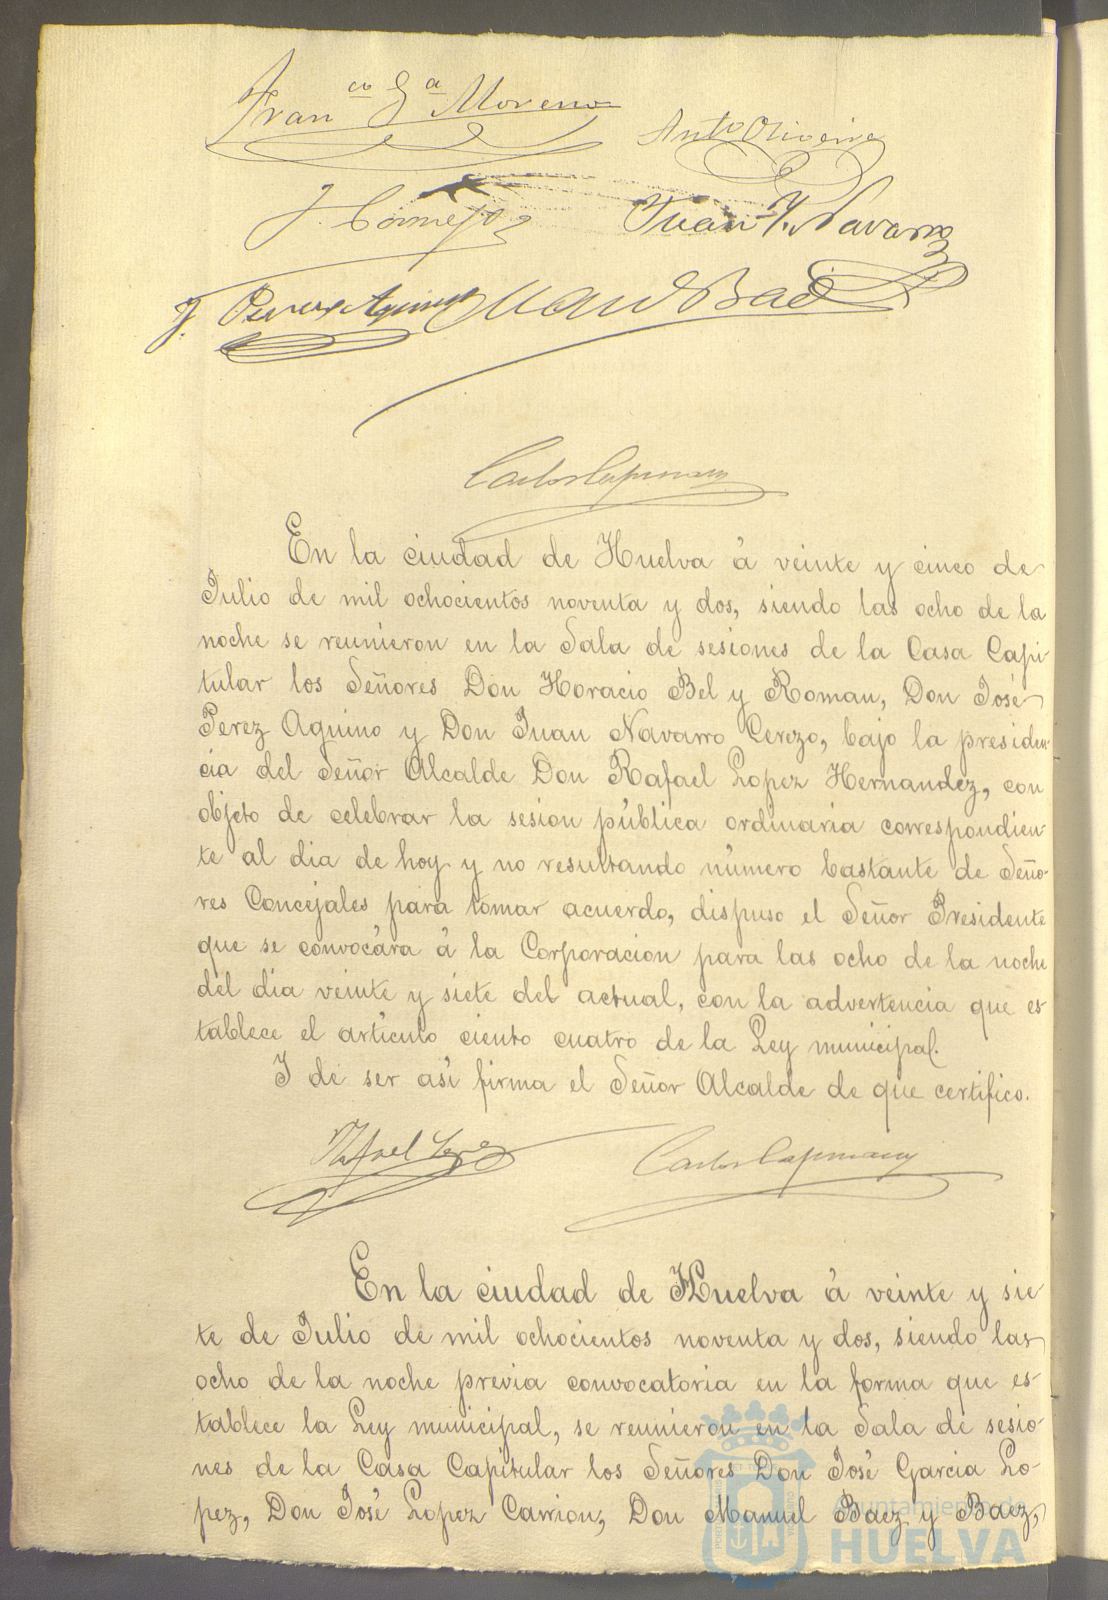 Franco Ga Moreno
Anto Oliveira
J. Cornejo
Juan J. Navarro
J. Perez Aquino
Man Baez
Carlos Capmany
En la ciudad de Huelva á veinte y cinco de
Julio de mil ochocientos noventa y dos, siendo las ocho de la
noche se reunieron en la Sala de sesiones de la Casa Capi-
tular los Señores Don Horacio Bel y Roman, Don José
Perez Aquino y Don Juan Navarro Cerezo, bajo la presiden-
cia del Señor Alcalde Don Rafael Lopez Hernandez, con
objeto de celebrar la sesion pública ordinaria correspondien-
te al dia de hoy y no resultando número bastante de Seño-
res Concejales para tomar acuerdo, dispuso el Señor Presidente
que se convocára á la Corporacion para las ocho de la noche
del dia veinte y siete del actual, con la advertencia que es-
tablece el artículo ciento cuatro de la Ley municipal.
Y de ser así firma el Señor Alcalde de que certifico.
Rafael Lopez
Carlos Capmany
En la ciudad de Huelva á veinte y sie-
te de Julio de mil ochocientos noventa y dos, siendo las
ocho de la noche previa convocatoria en la forma que es-
tablece la Ley municipal, se reunieron en la Sala de sesio-
nes de la Casa Capitular los Señores Don José Garcia Lo-
pez, Don José Lopez Carrion, Don Manuel Baez y Baez,
Ayuntamiento de
HUELVA